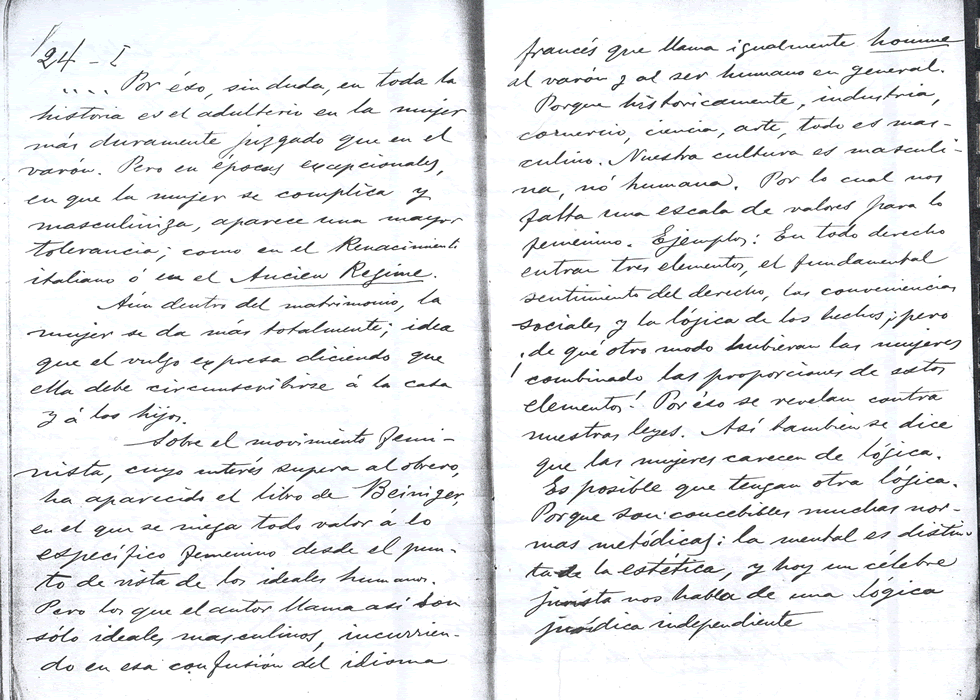 124 - I
.... Por éso, sin duda, en toda la
historia es el adulterio en la mujer
más duramente juzgado que en el
varón. Pero en épocas excepcionales,
en que la mujer se complica y
masculiniza, aparece una mayor
tolerancia; como en el Renacimiento
italiano ó en el Ancien Regime.
Aún dentro del matrimonio, la
mujer se da más totalmente; idea
que el vulgo expresa diciendo que
ella debe circunscribirse á la casa
y á los hijos.
Sobre el movimiento femi-
nista, cuyo interés supera al obrero,
ha aparecido el libro de Beiniger,
en el que se niega todo valor á lo
específico femenino desde el pun-
to de vista de los ideales humanos.
Pero los que el autor llama así son
sólo ideales masculinos, incurrien-
do en esa confusión del idioma
francés que llama igualmente homme
al varón y al ser humano en general.
Porque historicamente, industria,
comercio, ciencia, arte, todo es mas-
culino. Nuestra cultura es masculi-
na, nó humana. Por lo cual nos
falta una escala de valores para lo
femenino. Ejemplos: En todo derecho
entran tres elementos, el fundamental
sentimiento del derecho, las conveniencias
sociales y la lógica de los hechos; pero
¡de qué otro modo hubieran las mujeres
combinado las proporciones de estos
elementos! Por éso se revelan contra
nuestras leyes. Así tambien se dice
que las mujeres carecen de lógica.
Es posible que tengan otra lógica.
Porque son concebibles muchas nor-
mas metódicas: la mental es distin-
ta de la estética, y hoy un célebre
jurista nos habla de una lógica
jurídica independiente